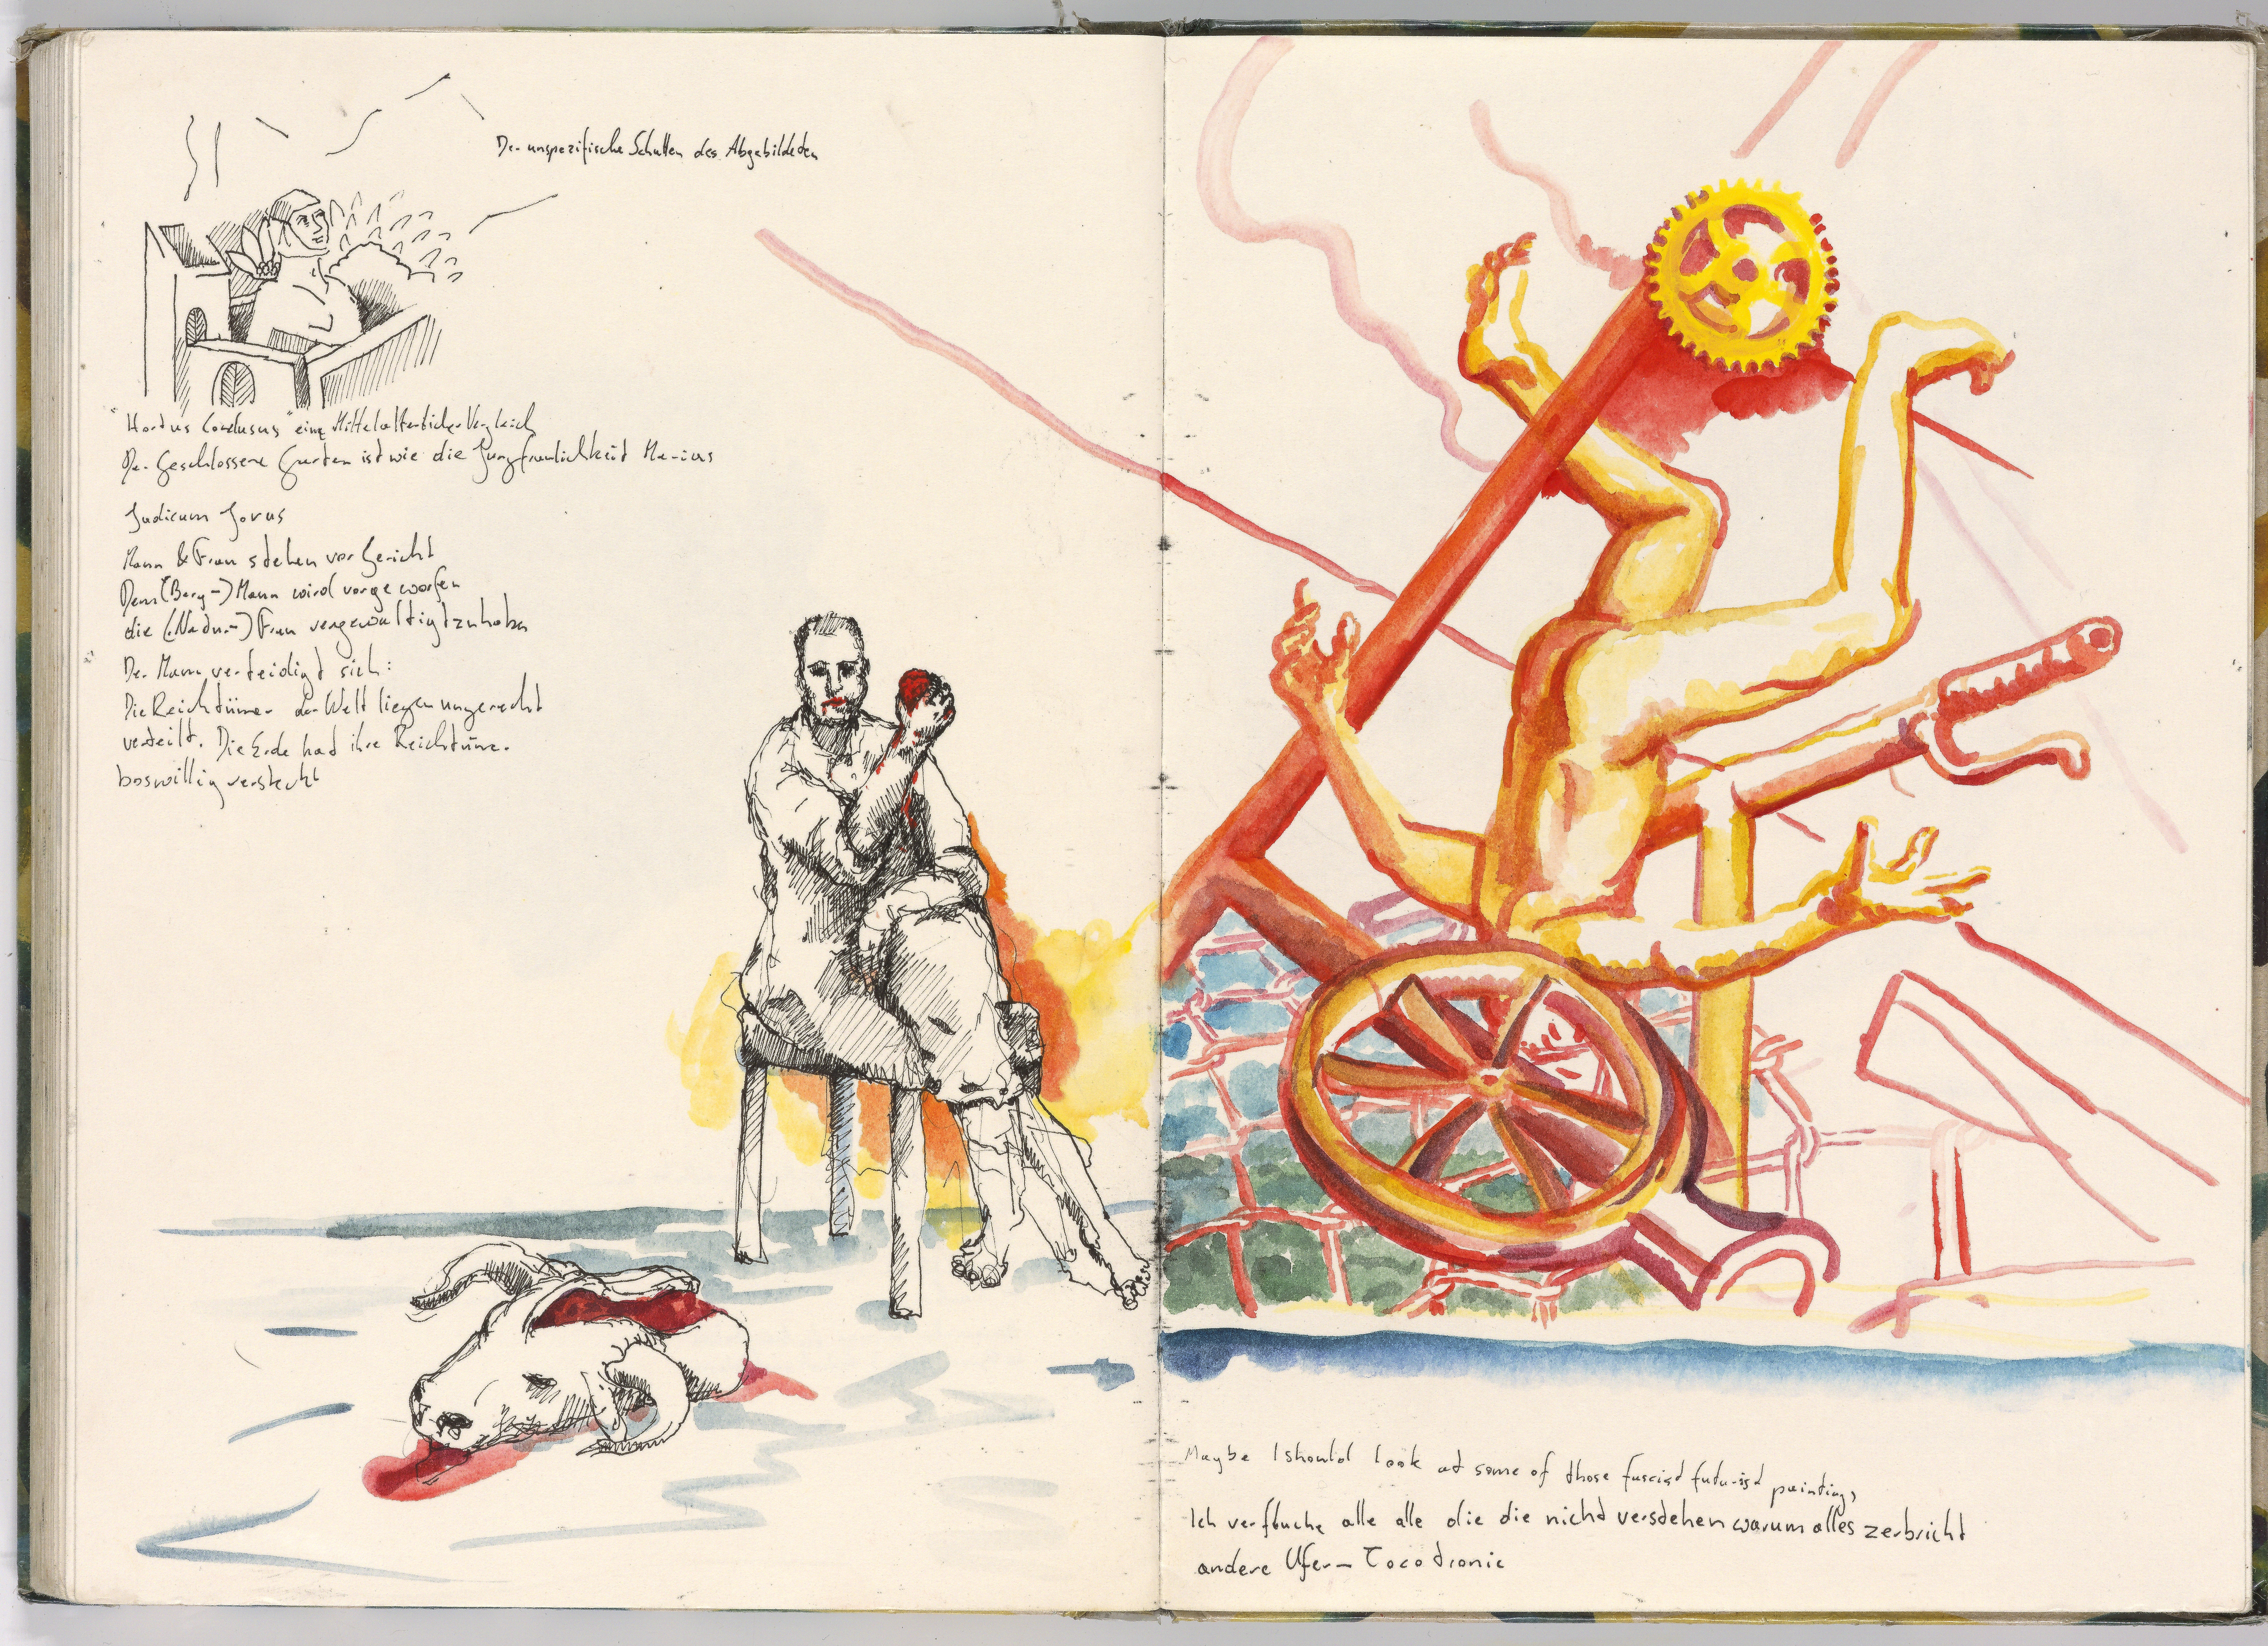 Der unspezifische Schatten des Abgebildeten
"Hortus Conclusus" eine Mittelalterlicher Vergleich
Der Geschlossene Garten ist wie die Jungfraulichkeit Marias
Judicum Jovus
Mann & Frau stehen vor Gericht
Dem (Berg-) Mann wird vorgeworfen
die (Natur-) Frau vergewaltigt zu haben
Der Mann verteidigt sich:
Die Reichtümer der Welt liegen ungerecht
verteilt. Die Erde hat ihre Reichtümer
boswillig versteckt
Maybe I should look at some of those fascist futurist paintings
Ich verfluche alle alle die die nicht verstehen warum alles zerbricht
andere Ufer - Tocotronic